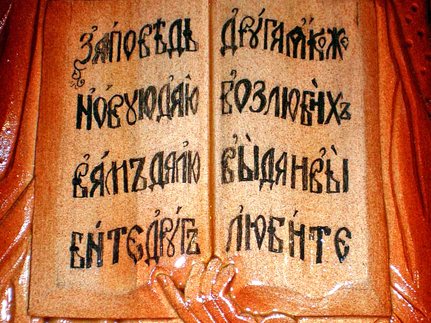 ЗАПОВѢДЬ
НОВꙋЮ ДАЮ
ВАМЪ ДА ЛЮ
БИТЕ ДРꙋГЪ
ДРꙋГА ѦКОЖЕ
ВОЗЛЮБИХЪ
ВЫ ДА И ВЫ
ЛЮБИТЕ